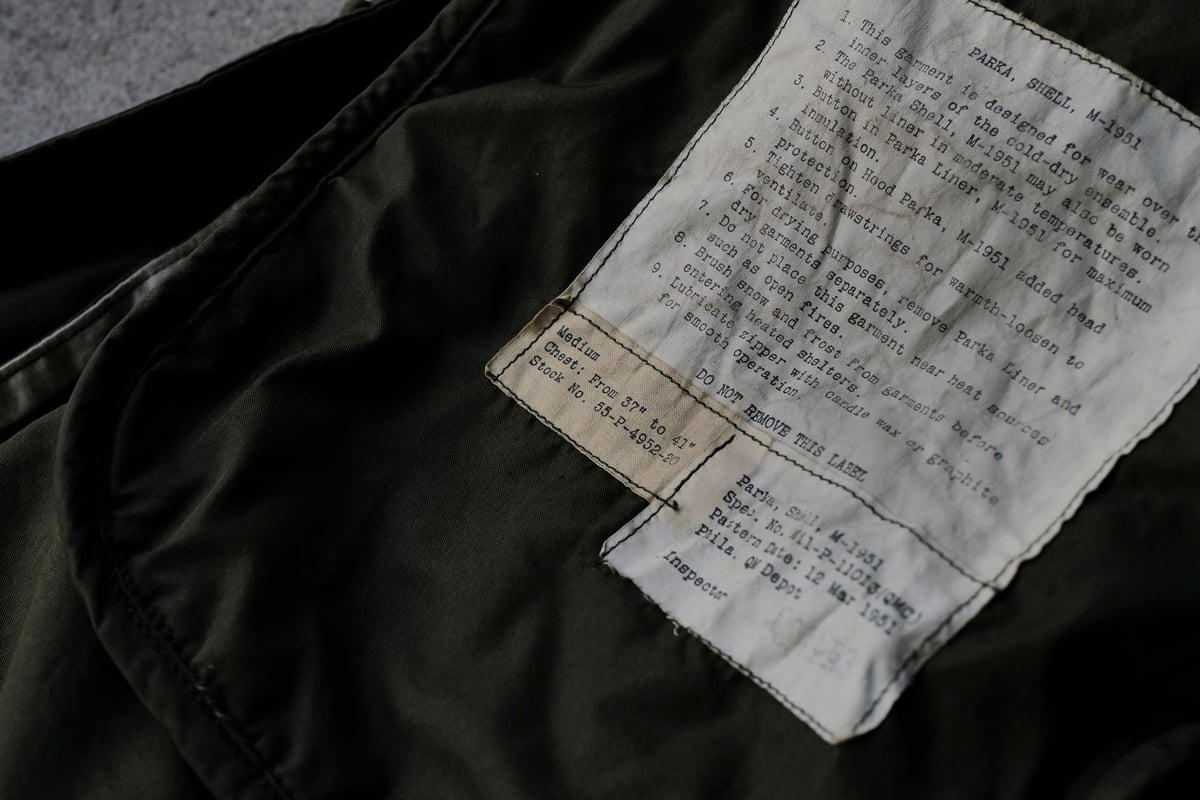 PARKA, SHELL, M-1951
1. This garment is designed for wear over
inner layers of the cold-dry ensemble.
2. The Parka Shell, M-1951 may also be worn
without liner in moderate temperatures.
3. Button in Parka Liner, M-1951 for maximum
insulation.
4. Button on Hood Parka, M-1951 added head
protection.
5. Tighten drawstrings for warmth-loosen to
ventilate.
6. For drying purposes, remove Parka Liner and
dry garments separately.
7. Do not place this garment near heat sources
such as open fires.
8. Brush snow and frost from garments before
entering heated shelters.
9. Lubricate zipper with candle wax or graphite
for smooth operation.
DO NOT REMOVE THIS LABEL
Medium
Chest: From 37" to 41"
Stock No. 55-P-4952-20
Parka, Shell, M-1951
Spec. No. Mil-P-11013(QMC)
Pattern Date: 12 Mar 1951
Phila. QM Depot
Inspector